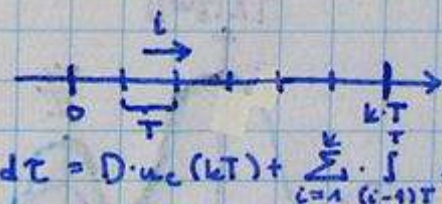 i
0 T k·T
dτ = D·u_c(kT) + Σ_{i=1}^{k} · ∫_{(i-1)T}^{T}